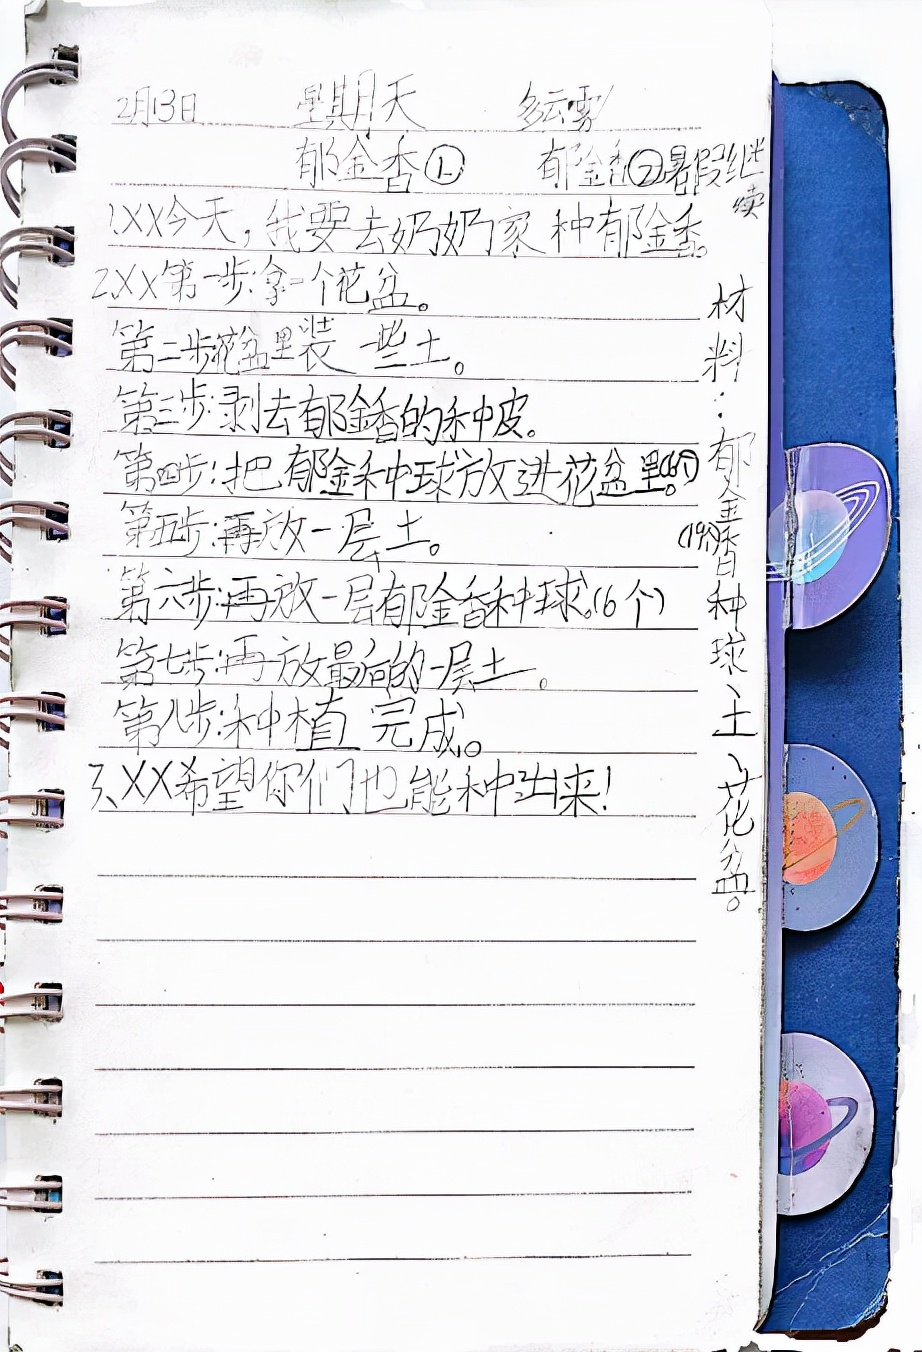 2月13日 星期天 多云雾
郁金香① 郁金香②暑假继续
1.XX今天，我要去奶奶家种郁金香。
2.XX第一步:拿一个花盆。
第二步:花盆里装一些土。
第三步:剥去郁金香的种皮。
第四步:把郁金种球放进花盆里。
第五步:再放一层土。
第六步:再放一层郁金香种球。(6个)
第七步:再放最后的一层土。
第八步:种植完成。
3、XX希望你们也能种出来!
材料:郁金香种球、土、花盆。